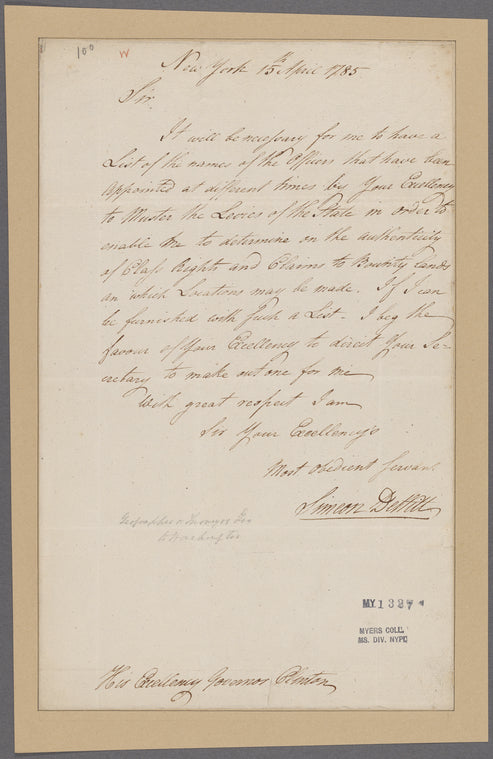 100 W
New York 15th April 1785
Sir
It will be necessary for me to have a
List of the names of the Officers that have been
appointed at different times by Your Excellency
to Muster the Levies of the State in order to
enable me to determine on the authenticity
of Class Rights and Claims to Bounty Lands
on which Locations may be made. If I can
be furnished with such a List. I beg the
favour of Your Excellency to direct Your Se-
cretary to make out one for me
With great respect I am
Sir Your Excellency's
Most Obedient Servant
Simeon DeWitt
Geographer & Surveyor Gen
to Washington
MY 1327
MYERS COLL.
MS. DIV. NYPL
His Excellency Governor Clinton